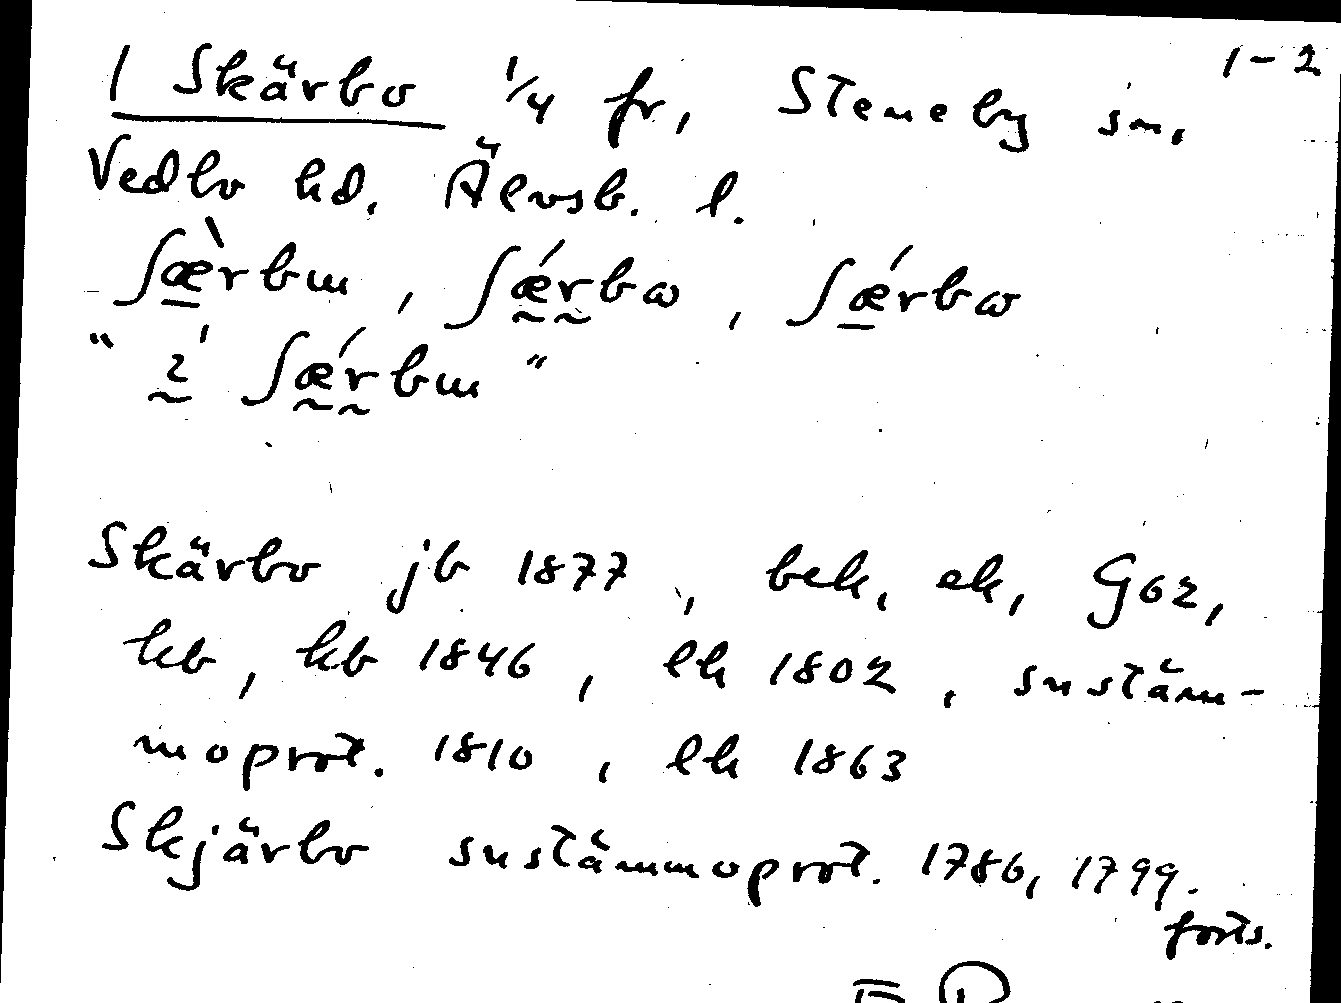 1-2
1 Skärbo 1/4 fr, Steneby sn,
Vedbo hd. Älvsb. l.
ʃæ̀rbɯ, ʃǽrbω, ʃǽrbω
" ɪ' ʃǽrbɯ "
Skärbo jb 1877, bek, ek, G62,
kb, kb 1846, lk 1802, snstäm-
moprot. 1810, lk 1863
Skjärbo snstämmoprot. 1786, 1799.
forts.